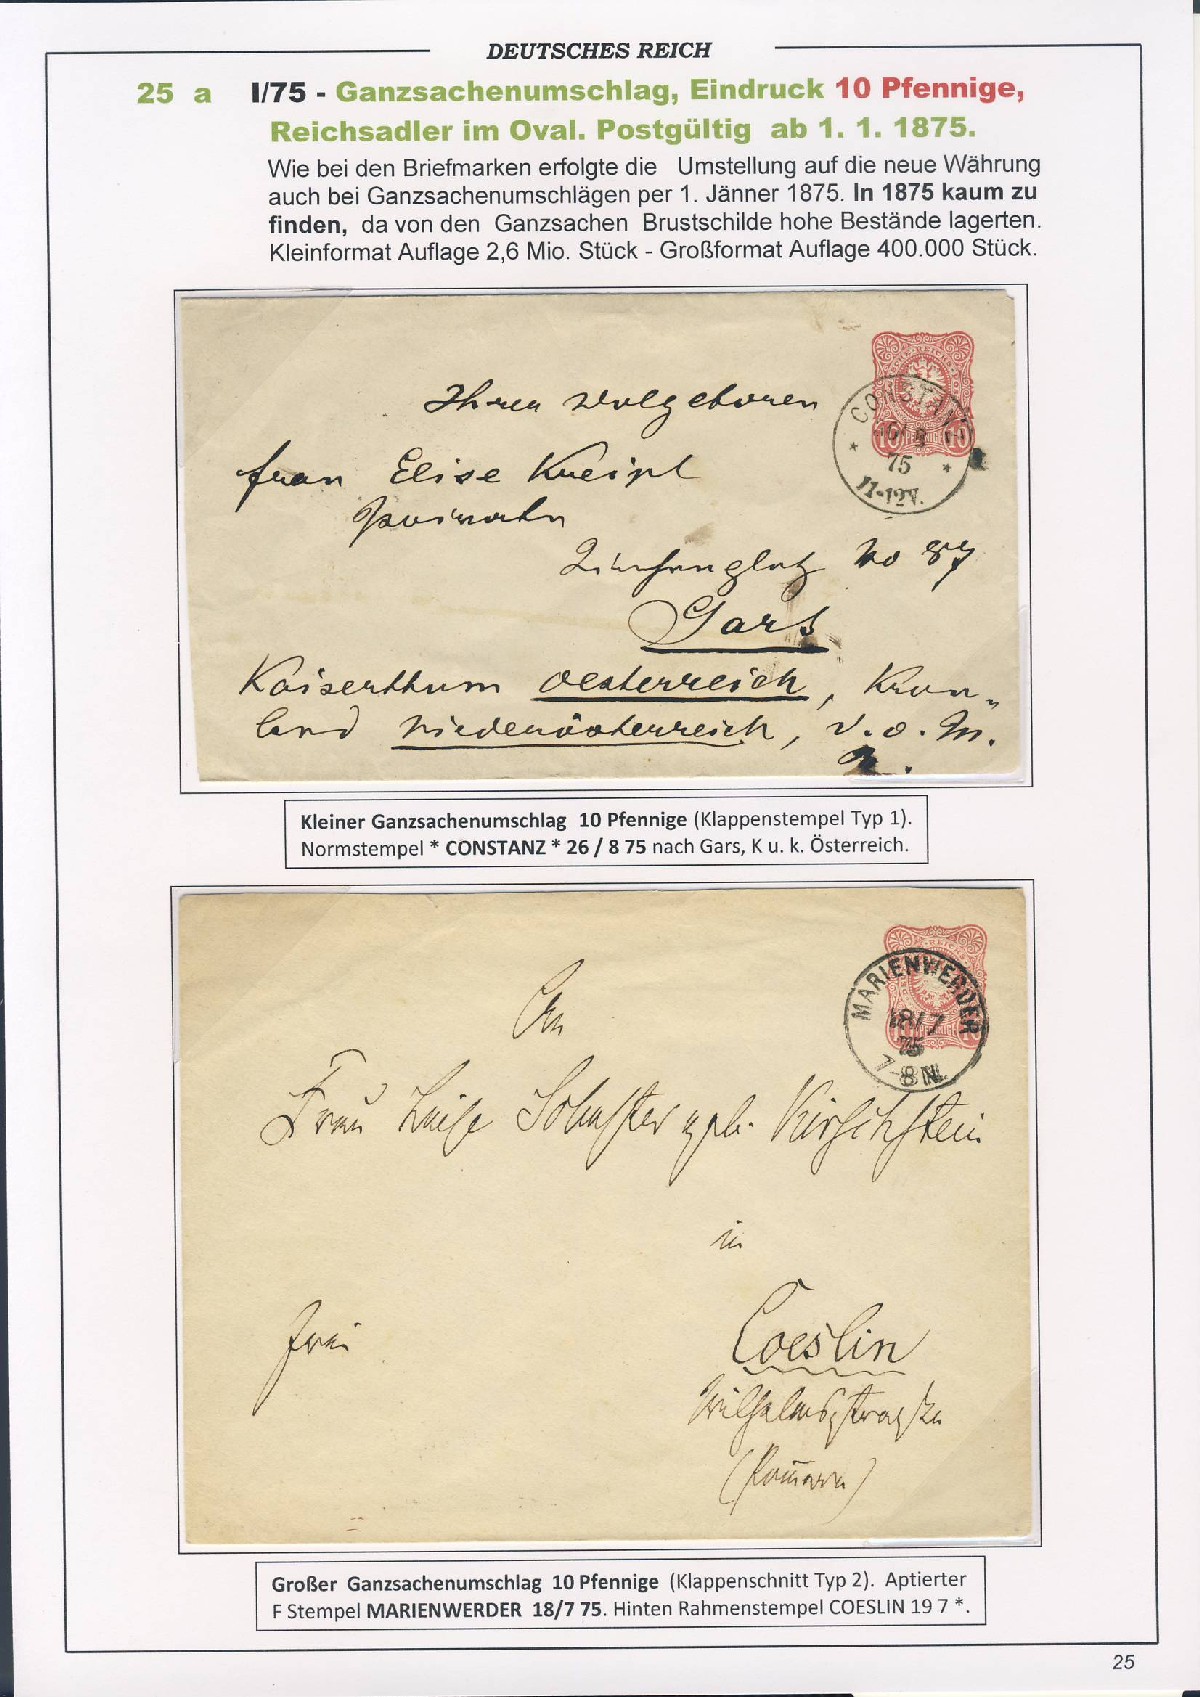 DEUTSCHES REICH
25 a I/75 - Ganzsachenumschlag, Eindruck 10 Pfennige,
Reichsadler im Oval. Postgültig ab 1. 1. 1875.
Wie bei den Briefmarken erfolgte die Umstellung auf die neue Währung
auch bei Ganzsachenumschlägen per 1. Jänner 1875. In 1875 kaum zu
finden, da von den Ganzsachen Brustschilde hohe Bestände lagerten.
Kleinformat Auflage 2,6 Mio. Stück - Großformat Auflage 400.000 Stück.
CONSTANZ
75
11-12V.
Ihrer Wolgeboren
frau Elise Kreipl
No 87
Gars
Kaiserthum Oesterreich, Kron-
land Niederösterreich, V. o. M.
Kleiner Ganzsachenumschlag 10 Pfennige (Klappenstempel Typ 1).
Normstempel * CONSTANZ * 26 / 8 75 nach Gars, K u. k. Österreich.
MARIENWERDER
18/7
75
7-8 N.
An
Frau Luise Schuster geb. Kirschstein
in
frei
Coeslin
Wilhelmsstraße
(Pommern)
Großer Ganzsachenumschlag 10 Pfennige (Klappenschnitt Typ 2). Aptierter
F Stempel MARIENWERDER 18/7 75. Hinten Rahmenstempel COESLIN 19 7 *.
25